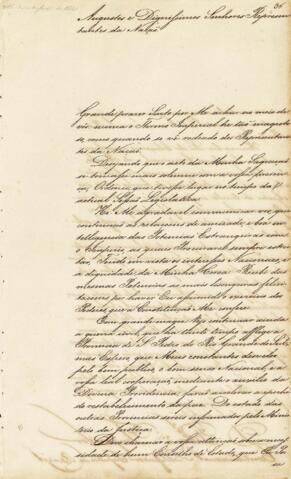 36
Augustos e Dignissimos Senhores Represen
tantes da Nação
Grande prazer Sinto por Me achar no meio de
vós: nunca o Throno Imperial he tão magesto
so, como quando se vê rodeado dos Representan
tes da Nação.
Desejando que o acto da Minha
se tornasse mais solemne com a vossa presen
ça, Ordenei que tivesse lugar no tempo da
actual Sessão Legislativa.
He Me agradavel communicar vos que
continuão as relações de amizade, e boa in
telligencia das Potencias Estrangeiras com
o Imperio, as quaes Procurarei sempre susten
tar, Tendo em vista os interesses Nacionaes, e
a dignidade da Minha Coroa. Recebi das
mesmas Potencias as mais lisongeiras felici
tações por haver Eu assumido o exercicio dos
Poderes, que a Constituição Me confere.
Com grande magoa Vejo continuar ainda
a guerra civil, que por tanto tempo afflige a
Provincia de S. Pedro do Rio Grande do Sul:
mas Espero, que Meus constantes desvelos
pelo bem publico, o bom senso Nacional, e a
vossa leal cooperação, mediante os auxilios da
Divina Providencia, farão apressar a epocha
do restabelecimento da paz. Do estado das
outras Provincias sereis informados pelo Minis
terio da Justiça.
Devo chamar a vossa attenção sobre a neces
sidade de hum Conselho de Estado, que Eu Pos
sa